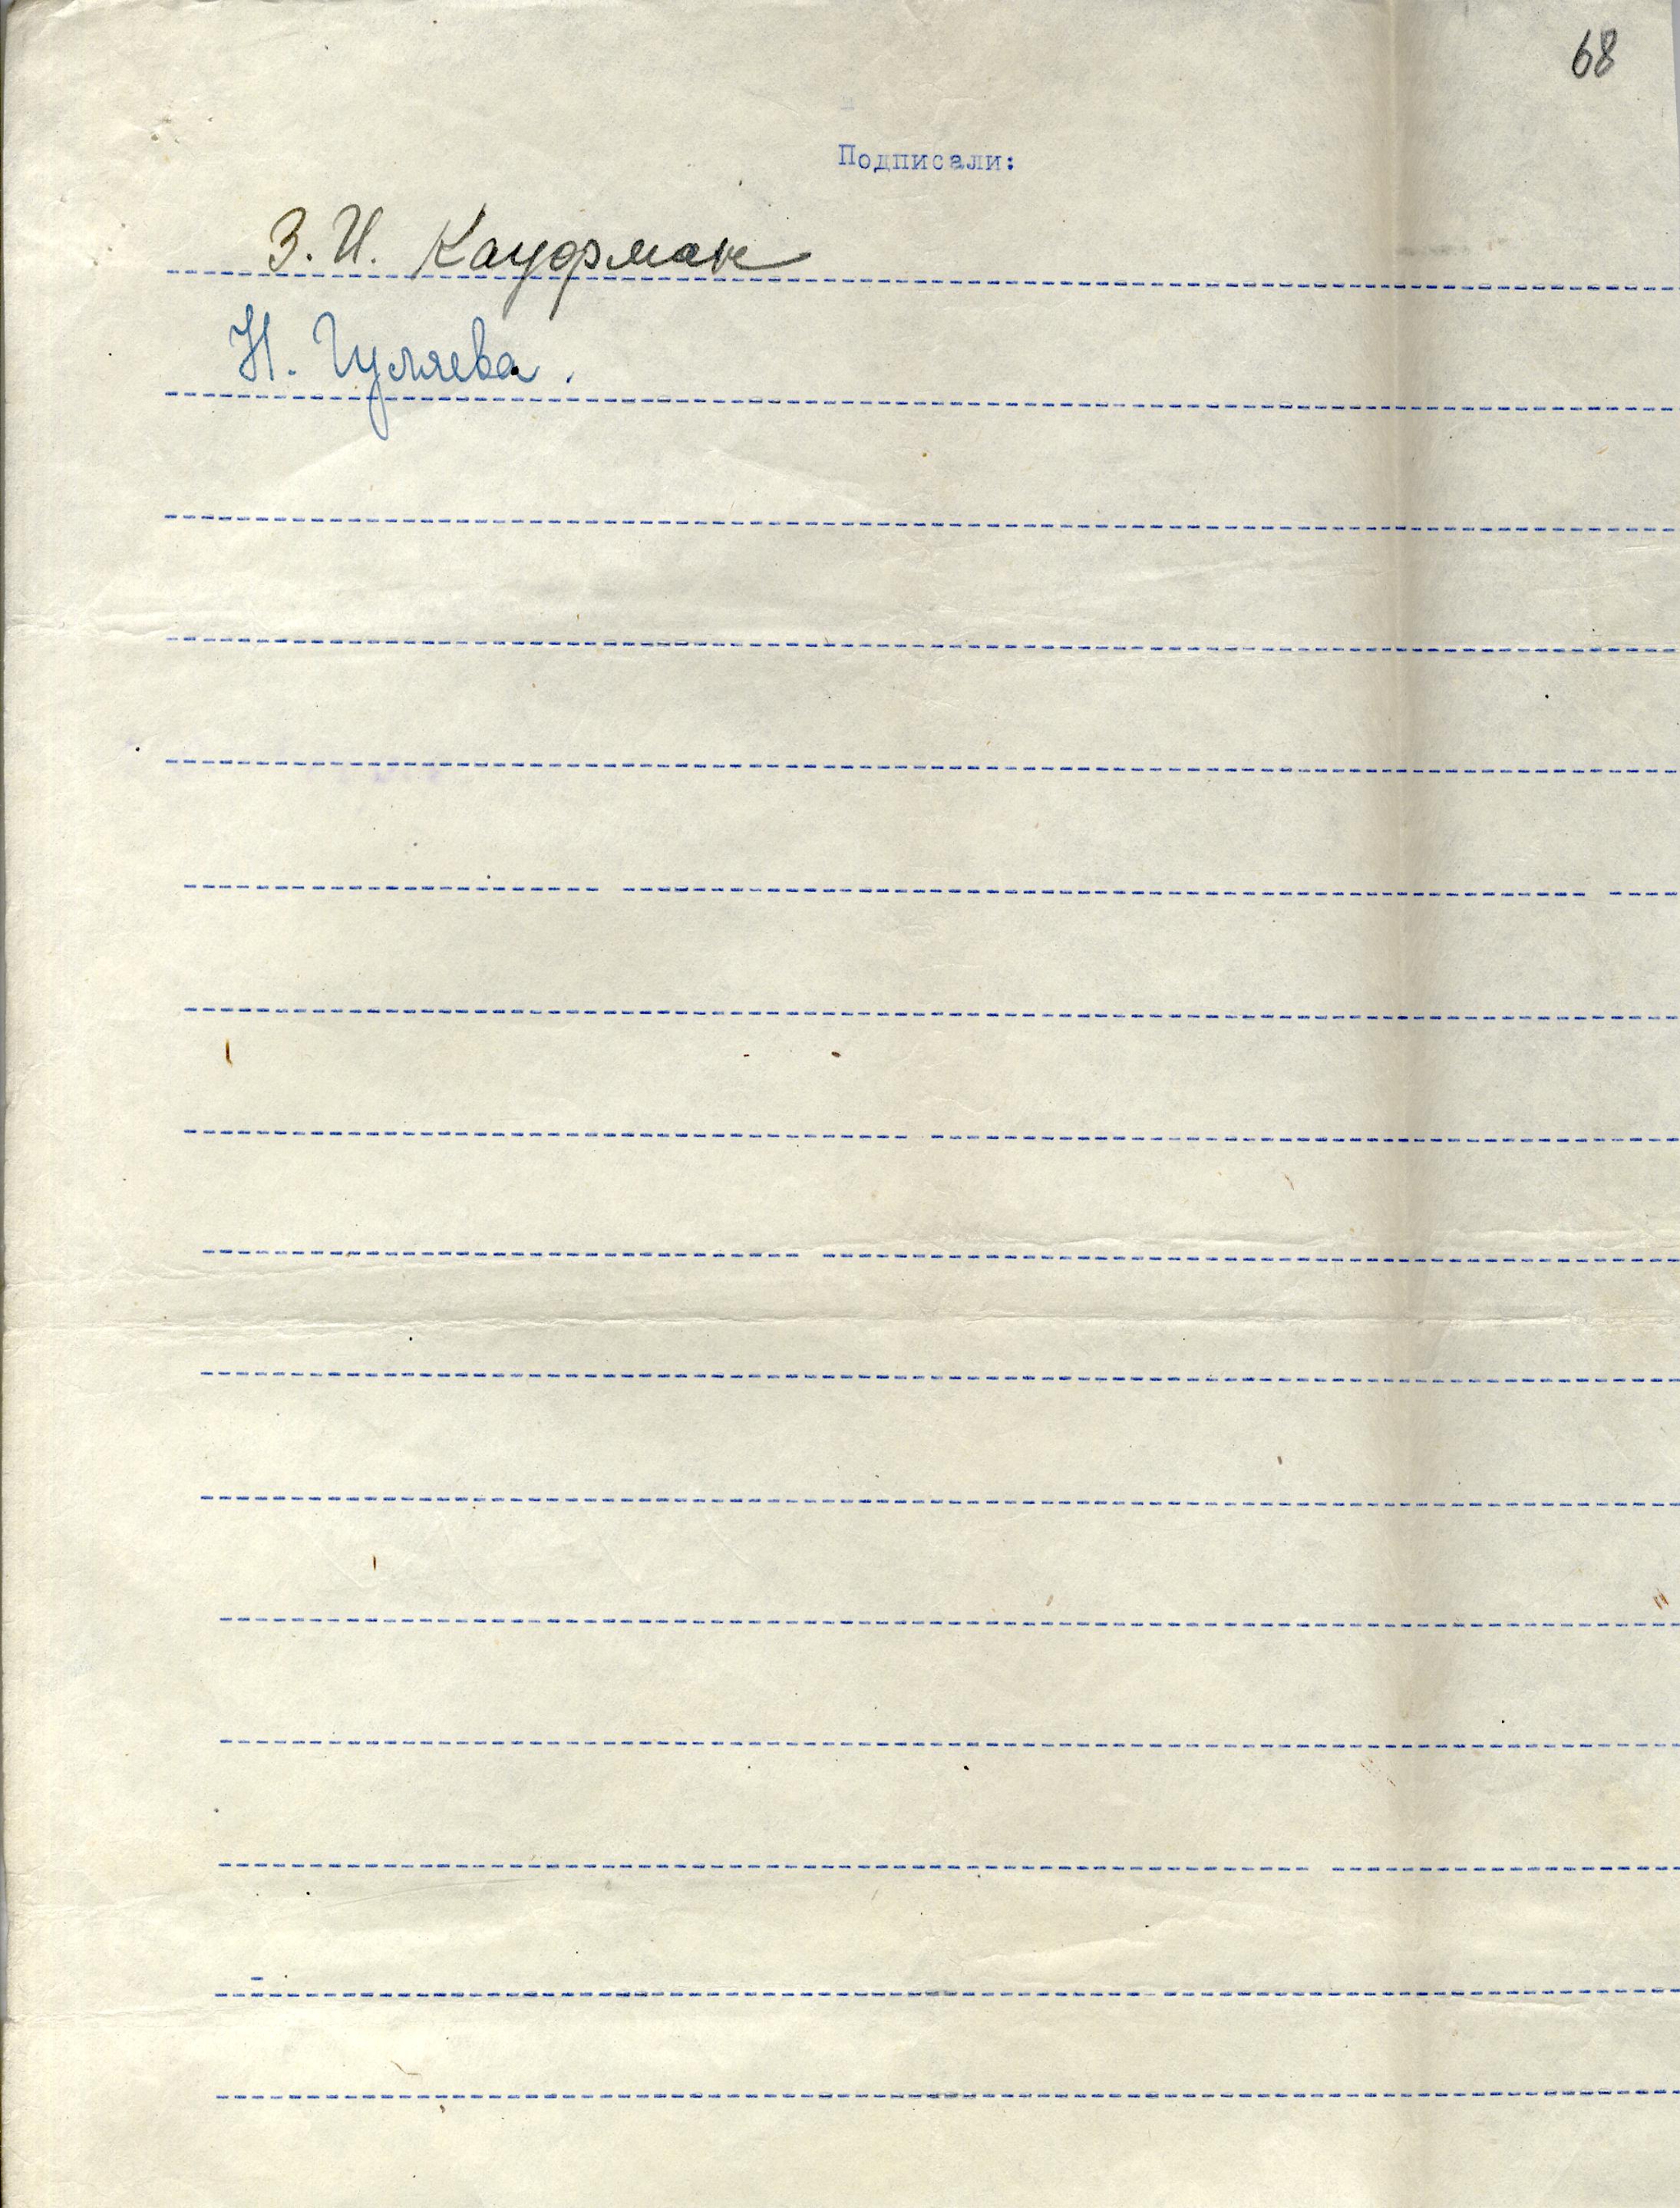 68
Подписали:
З. И. Кауфман
Н. Гуляева.